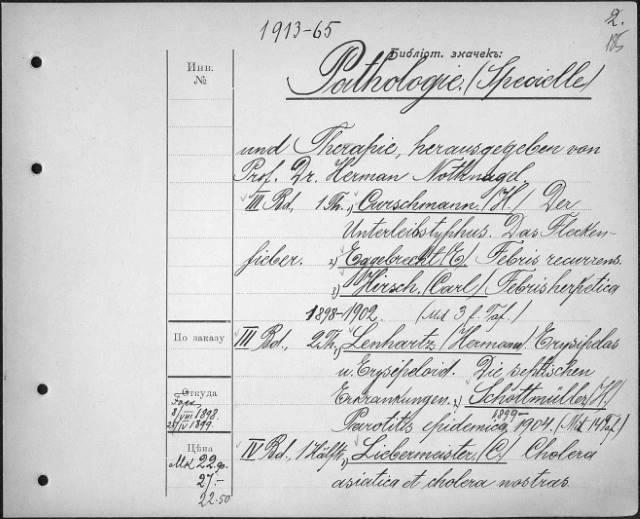 1913-65
2.
185
Библіот. значекъ:
Инв.
№
Pathologie. (Specielle)
und Therapie, herausgegeben von
Prof. Dr. Herman Nothnagel
III Bd, 1 Th. 1) Curschmann. (H.) Der
Unterleibstyphus. Das Flecken-
fieber. 2) Eggebrecht (E) Febris recurrens.
3) Hirsch. (Carl) Febris herpetica
1898-1902. (Mit 3 f. Taf.)
По заказу
III Bd., 2 Th. 1) Lenhartz (Hermann). Erysipelas
u. Erysipeloid. Die septischen
Erkrankungen. 2) Schottmüller. (H.)
Parotitis epidemica 1899-1904. (Mit 14 Taf.)
Откуда
8/VIII 1898.
IV 1899.
Цѣна
Mk 22.90
27.-
22.50
IV Bd., 1 Hälfte 1) Liebermeister. (C.) Cholera
asiatica et cholera nostras